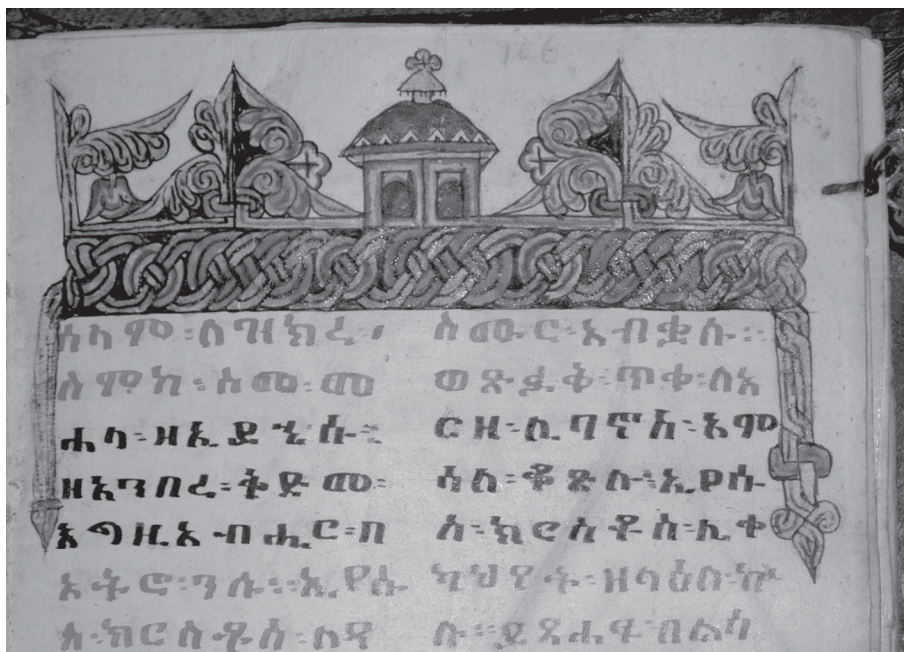 ሰላም፡ለዝክረ፡
ስምከ፡ስመ፡መ
ሐላ፡ዘኢይኄሱ፡
ዘአንበረ፡ቅድመ፡
እግዚአብሔር፡በ
አትሮንሱ።ኢየሱ
ስ፡ክርስቶስ፡ለዳ
ስሙር፡አብቋሉ።
ወጽፉቅ፡ጥቀ፡ለአ
ርዘ፡ሊባኖስ፡አም
ሳለ፡ቆጽሉ።ኢየሱ
ስ፡ክርስቶስ፡ሊቀ
ካህናት፡ዘላዕለ፡ኵ
ሉ።ይጸሐፍ፡በልሳ